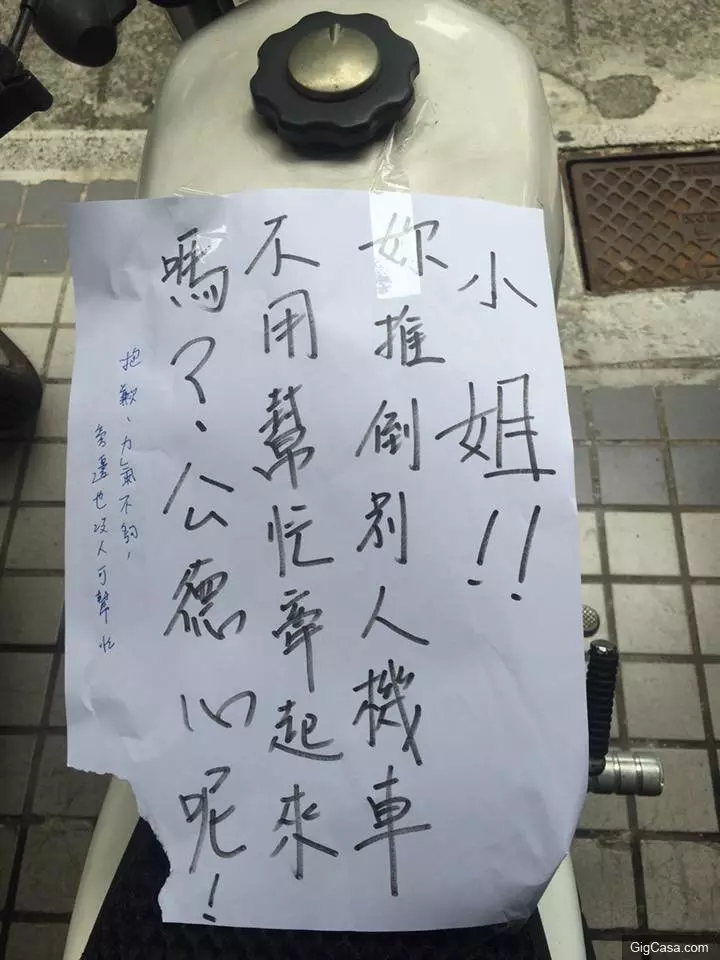 小姐!!
妳推倒別人機車
不用幫忙牽起來
嗎?、公德心呢!
抱歉、力氣不夠,
旁邊也沒人可幫忙
GigCasa.com